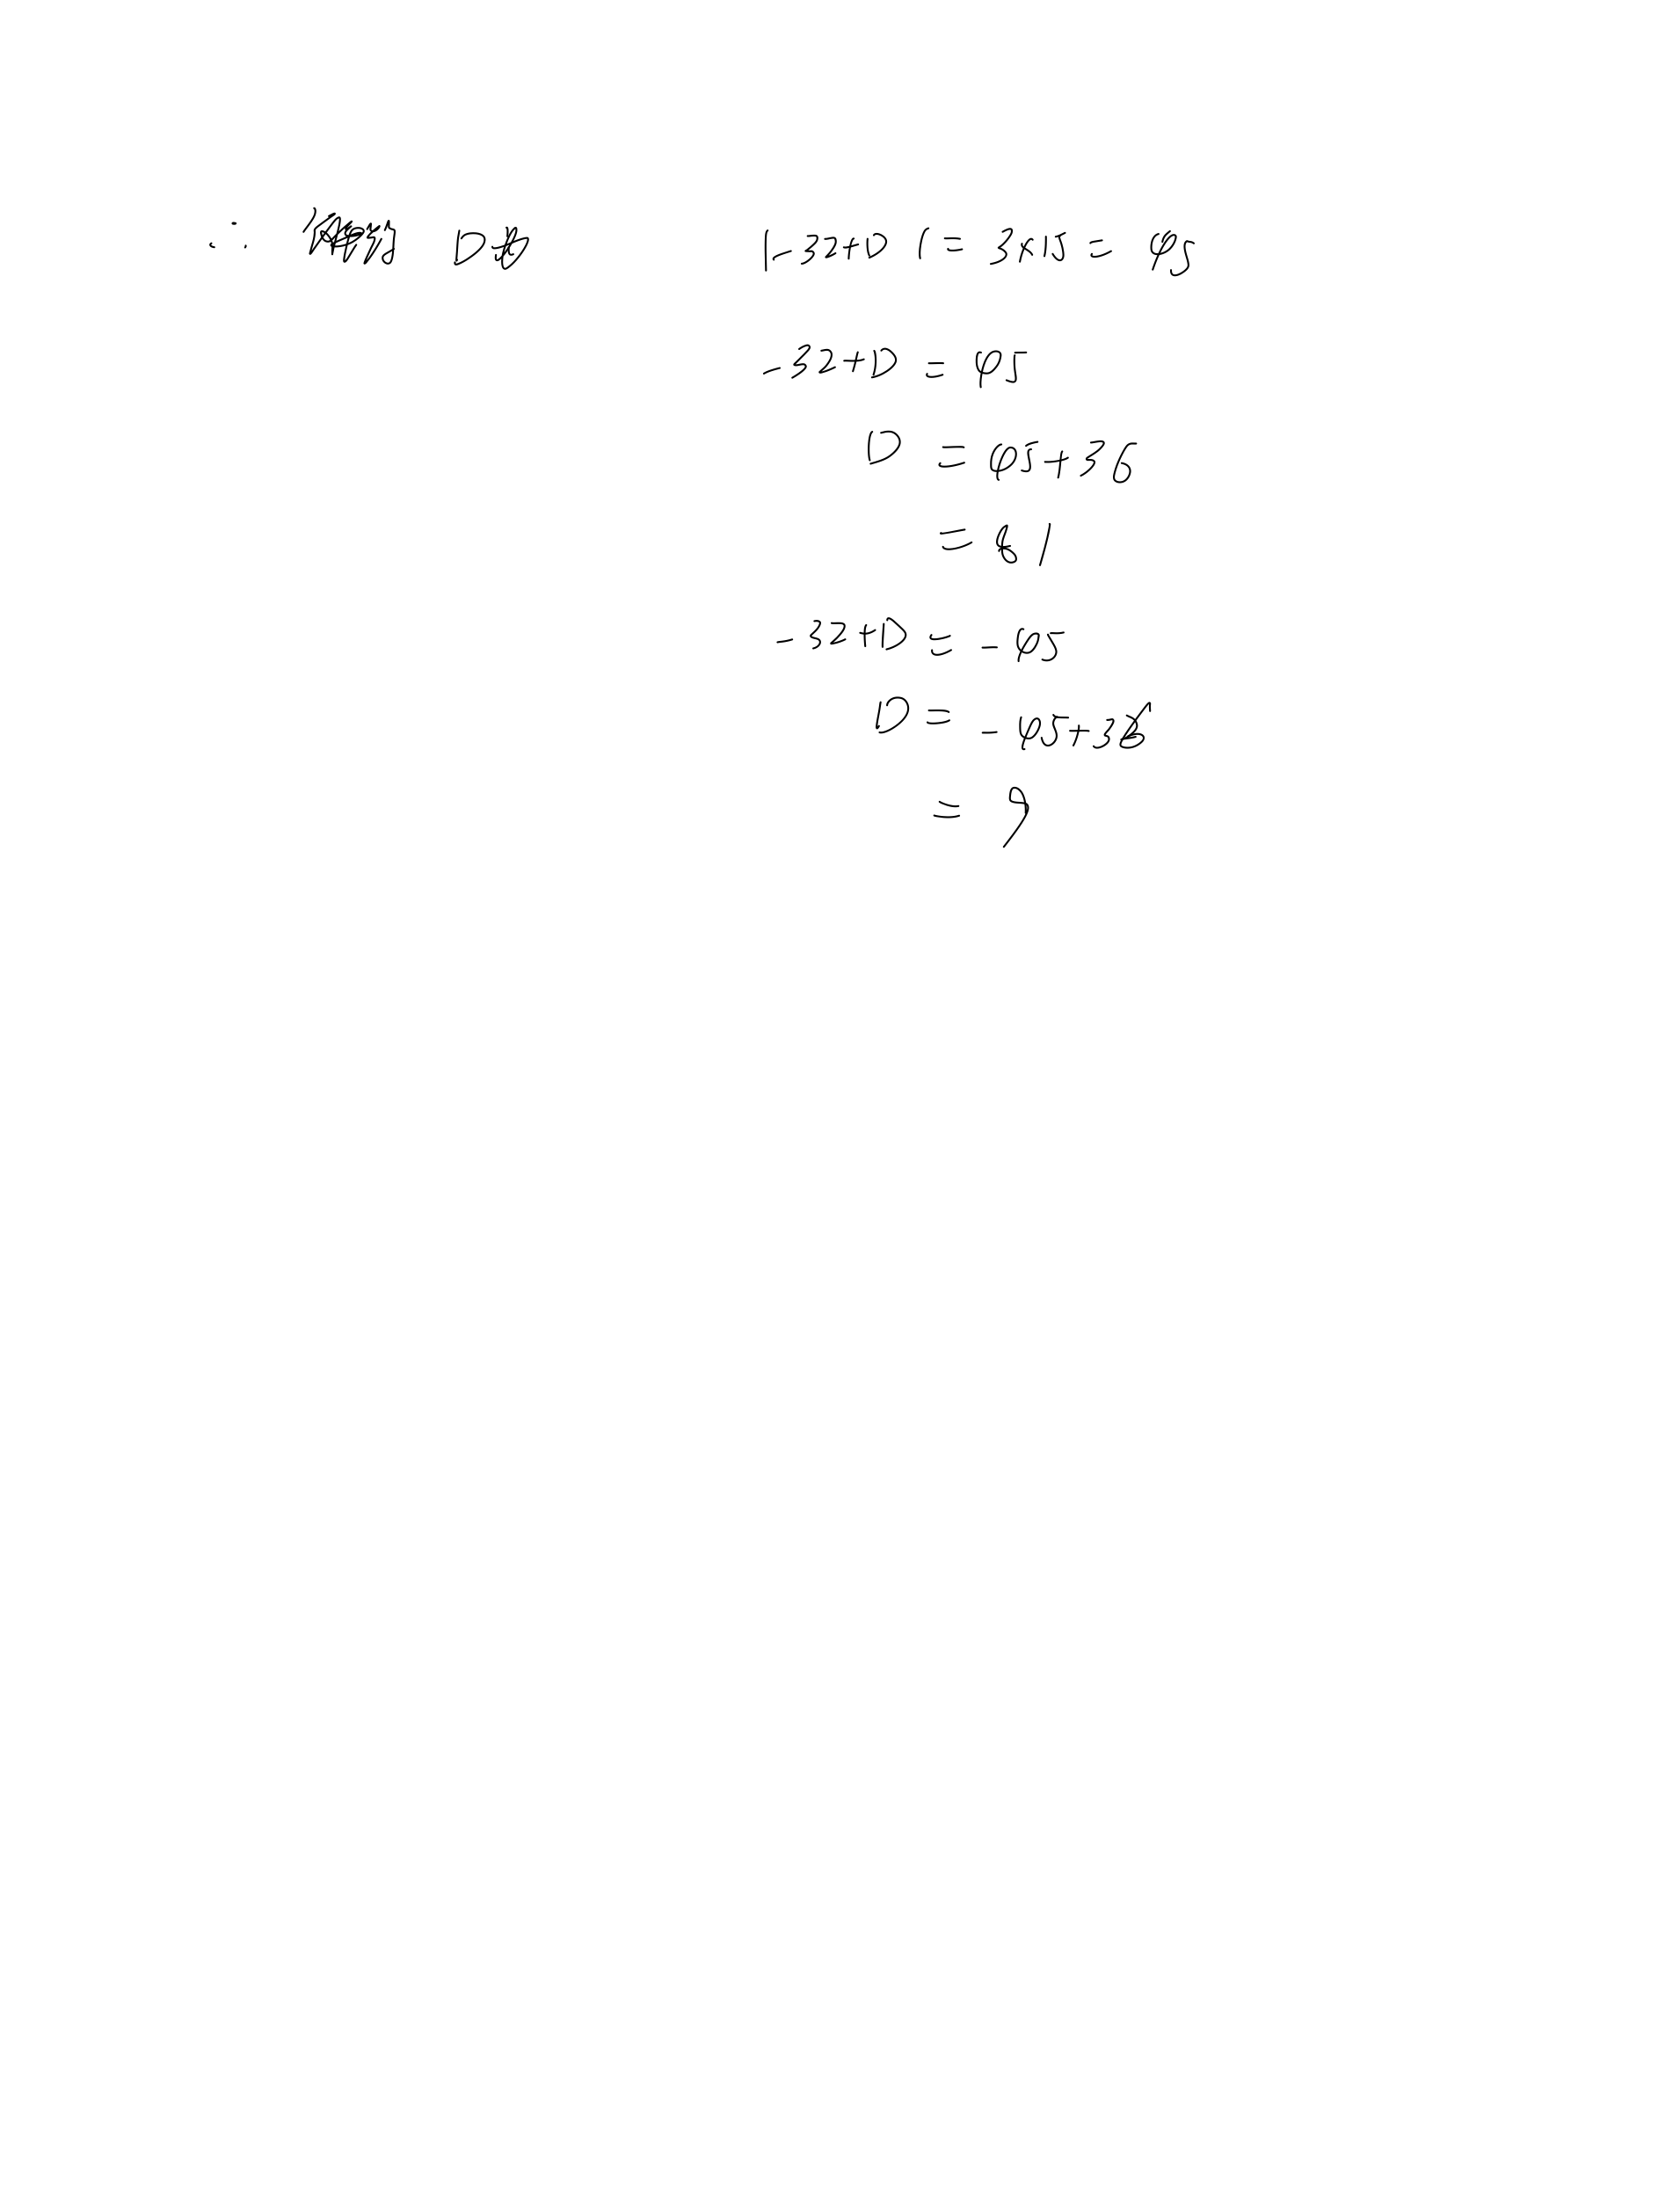 ∴ D |-32+D|=3×15=45
-32+D=45
D=45+36
=81
-32+D=-45
D=-45+36
=9